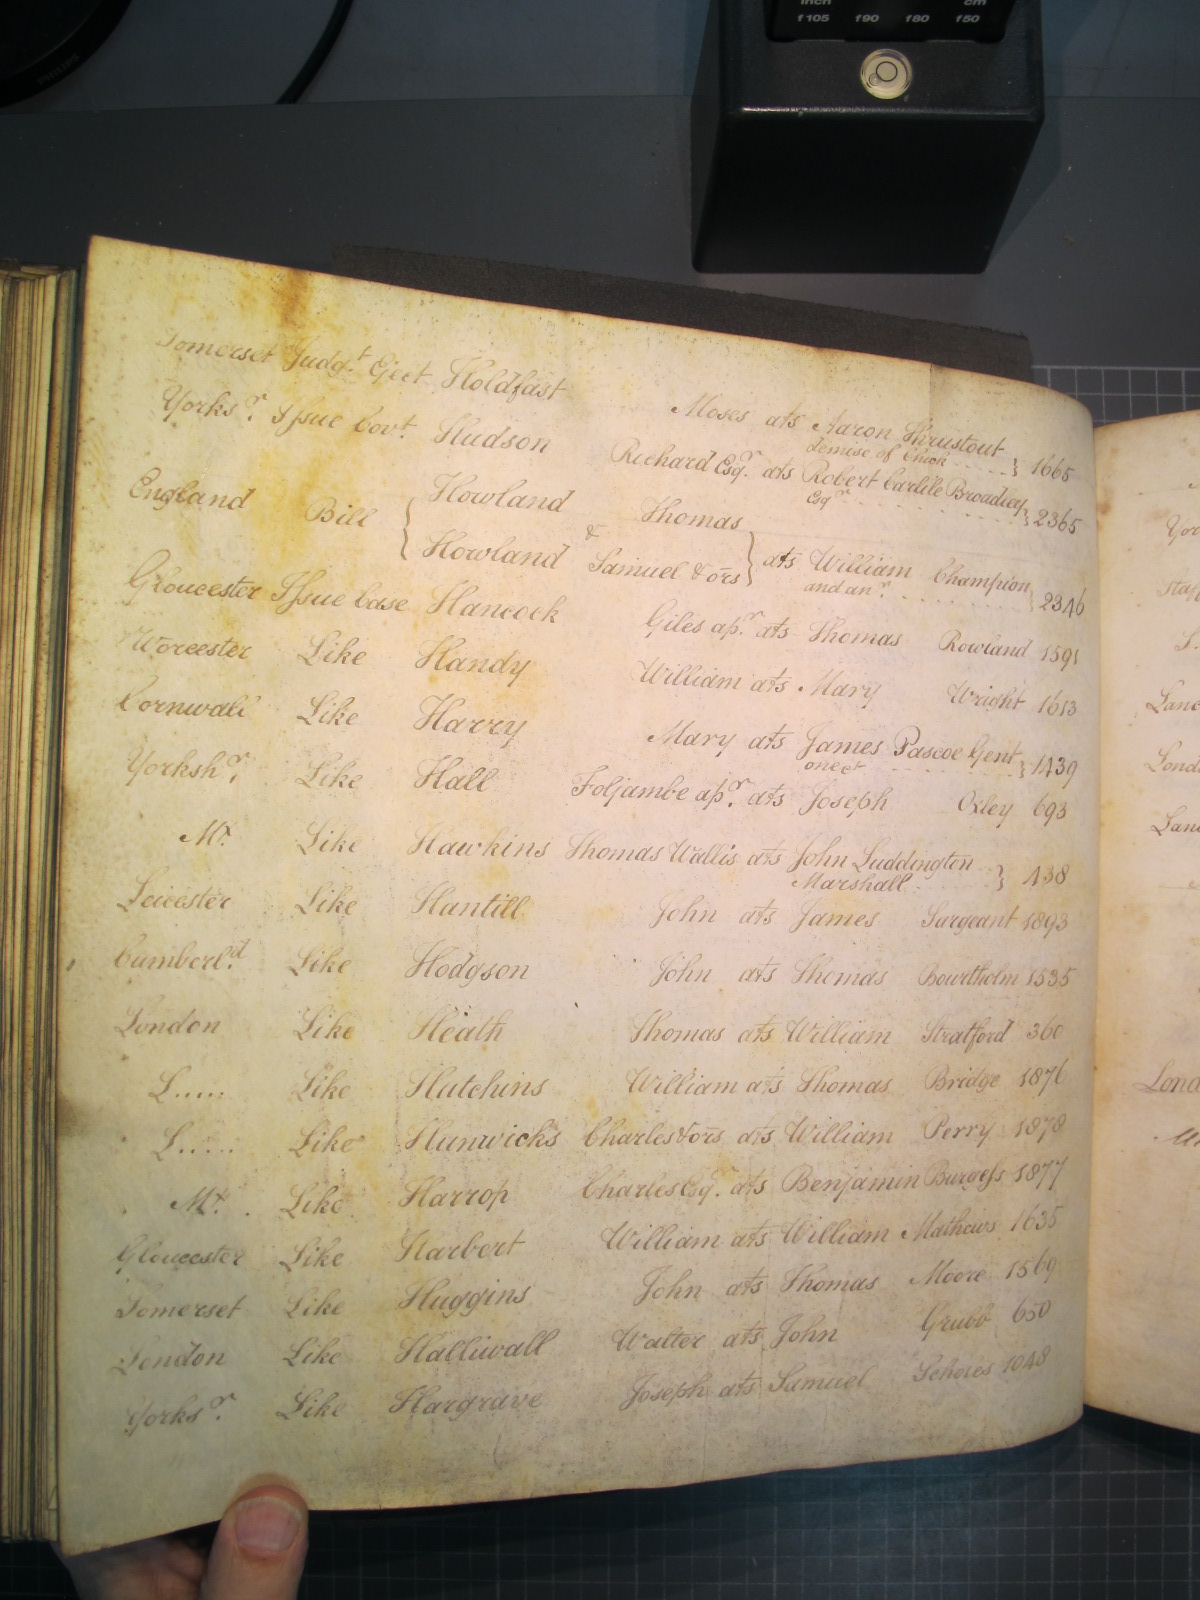 inch cm
f105 f90 f80 f50
PHILIPS
Somerset Judgt. Eject Holdfast Moses ats Aaron Thrustout
demise of Chick } 1665
Yorksr. Issue Covt. Hudson Richard Esqr. ats Robert Carlile Broadley
Esqr. } 2365
England Bill { Howland Thomas
& Howland Samuel & ors } ats William Champion
and anr. } 2346
Gloucester Issue Case Hancock Giles apr. ats Thomas Rowland 1591
Worcester Like Handy William ats Mary Wright 1613
Cornwall Like Harry Mary ats James Pascoe Gent
one et } 1439
Yorkshr. Like Hall Foljambe apr. ats Joseph Oxley 693
Mx. Like Hawkins Thomas Wallis ats John Luddington
Marshall } 438
Leicester Like Hantill John ats James Sargeant 1893
Cumberld. Like Hodgson John ats Thomas Bowitholm 1535
London Like Heath Thomas ats William Stratford 360
L..... Like Hutchins William ats Thomas Bridge 1876
L..... Like Hunwicks Charles & ors ats William Perry 1878
Mx. Like Harrop Charles Esqr. ats Benjamin Burgess 1877
Gloucester Like Harbert William ats William Mathews 1635
Somerset Like Huggins John ats Thomas Moore 1569
London Like Halliwall Walter ats John Grubb 650
Yorksr. Like Hargrave Joseph ats Samuel Scholes 1048